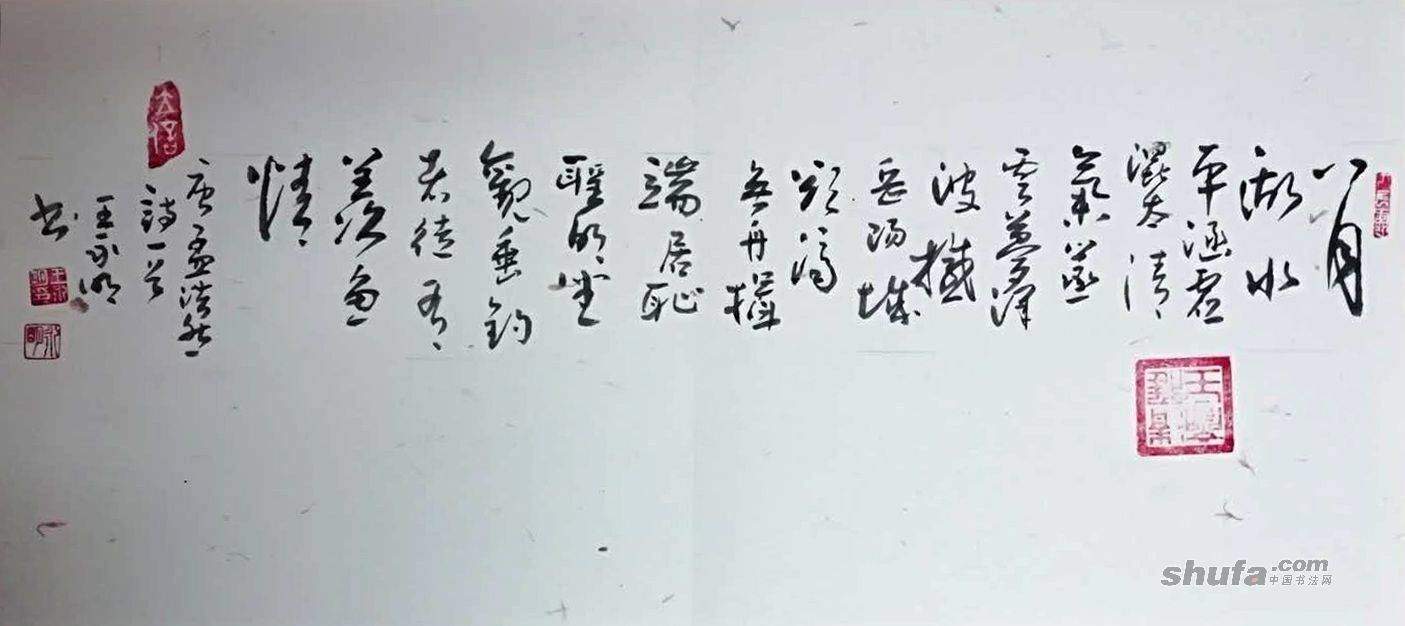 八月
湖水
平涵虚
混太清
氣蒸
雲夢澤
波撼
岳陽城
欲濟
無舟楫
端居恥
聖明坐
觀垂釣
者徒有
羨魚
情
唐孟浩然
詩一首
王永明
書
永明
shufa.com
中国书法网